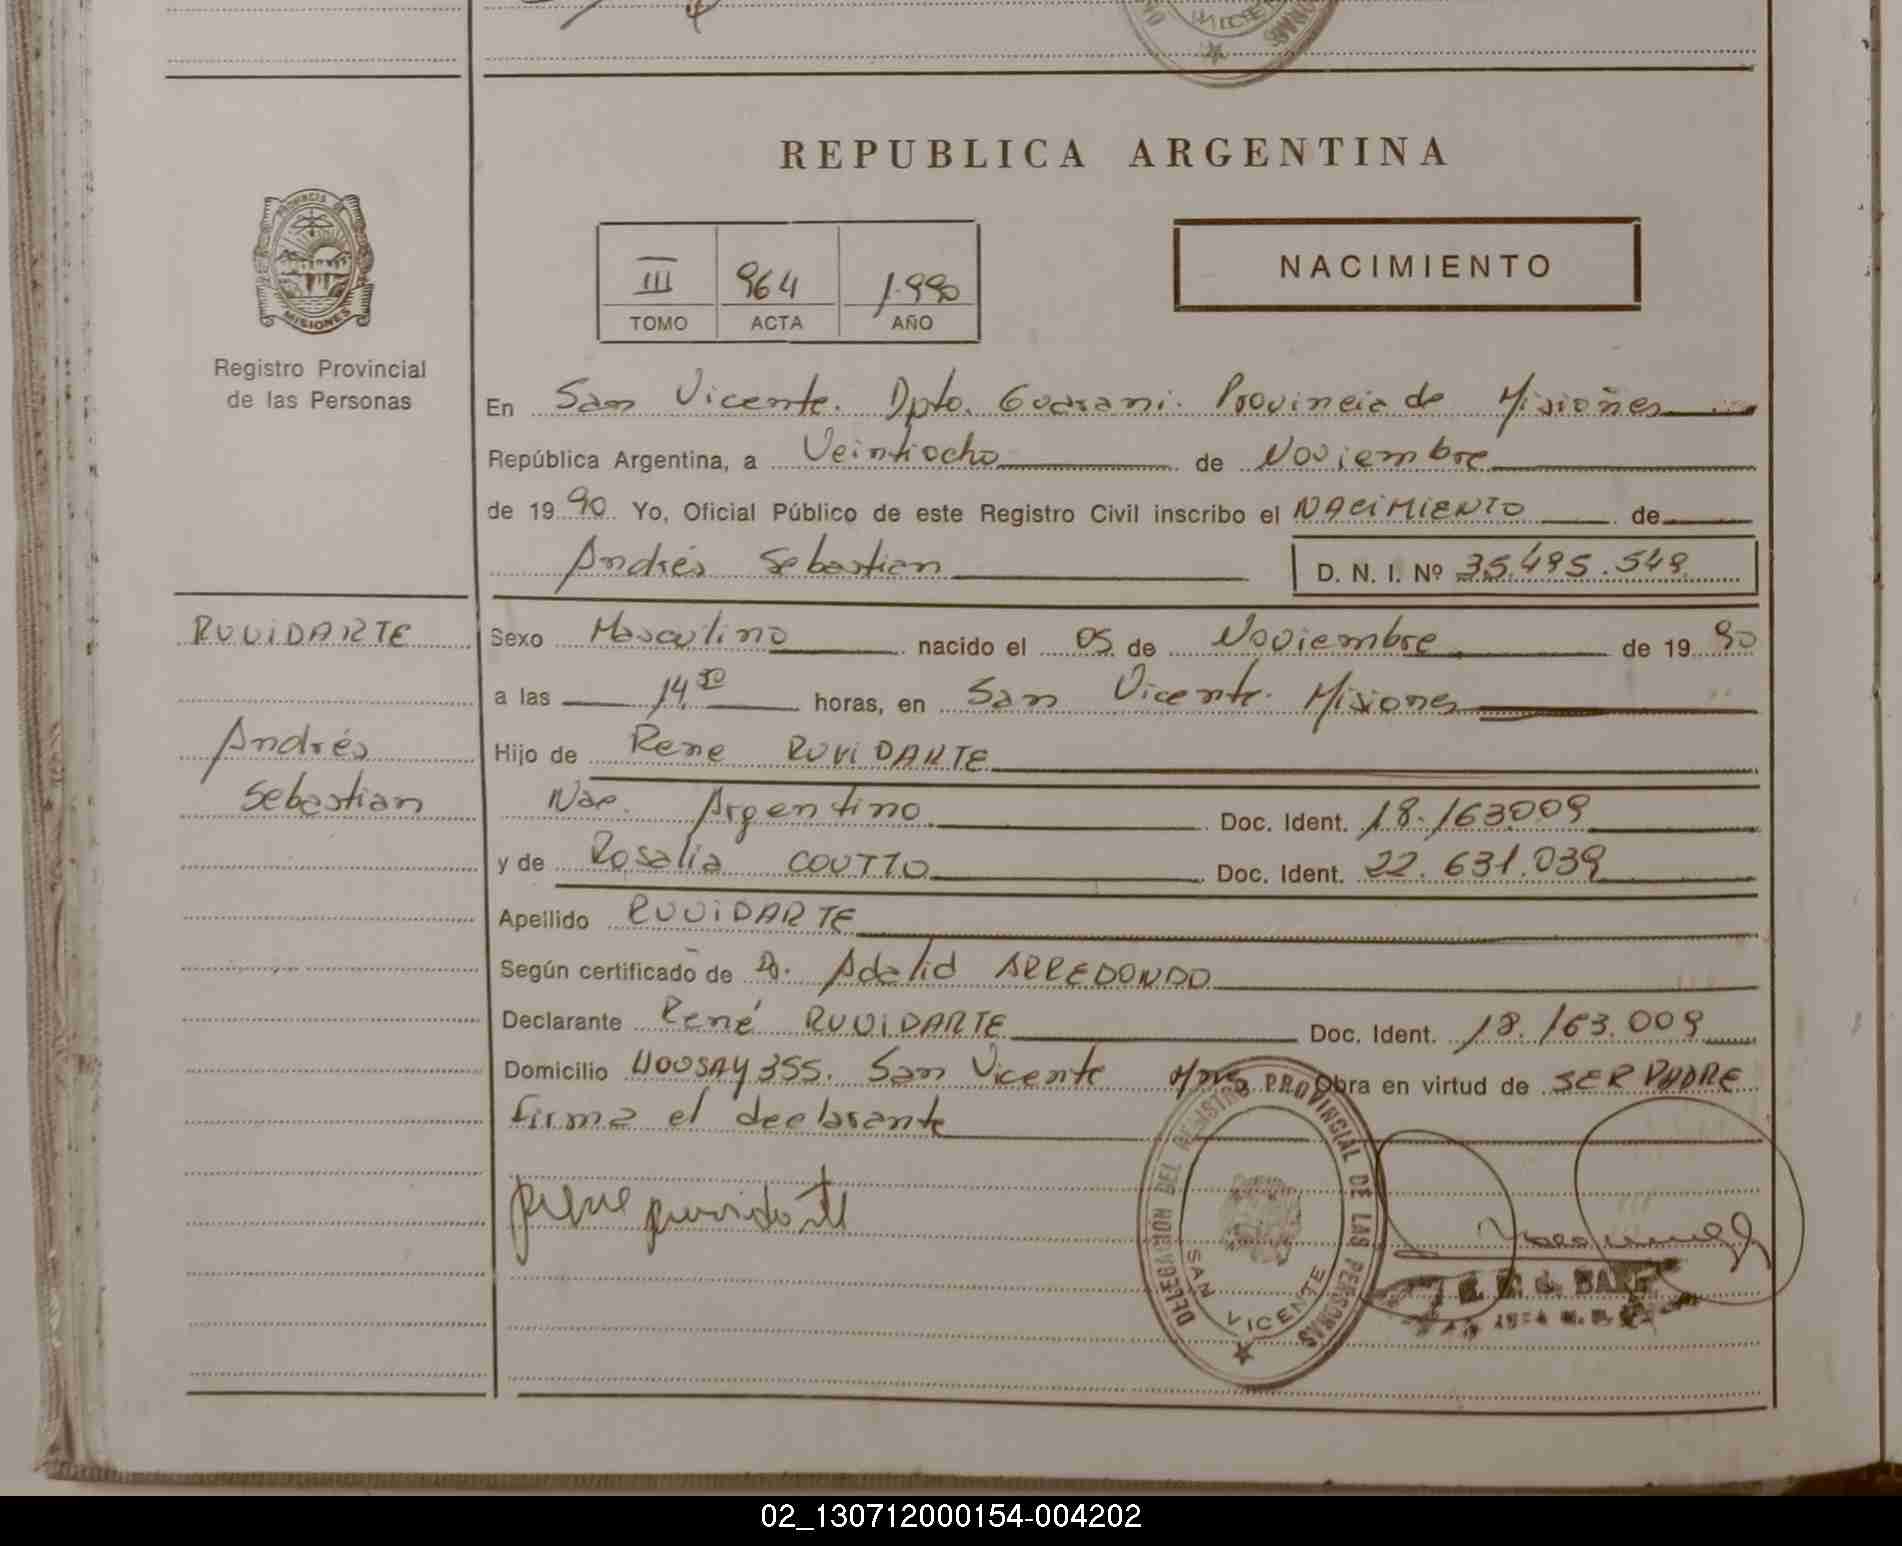 REPUBLICA ARGENTINA
PROVINCIA DE
MISIONES
Registro Provincial
de las Personas
III 964 1.990
TOMO ACTA AÑO
NACIMIENTO
En San Vicente. Dpto. Guarani. Provincia de Misiones
República Argentina, a Veintiocho de Noviembre
de 1990 Yo, Oficial Público de este Registro Civil inscribo el NACIMIENTO de
Andrés Sebastian D. N. I. Nº 35.495.549
RUVIDARTE
Andrés
Sebastian
Sexo Masculino nacido el 05 de Noviembre de 1990
a las 14 horas, en San Vicente. Misiones
Hijo de Rene RUVIDARTE
Nac. Argentino Doc. Ident. 18.163009
y de Rosalia COUTTO Doc. Ident. 22.631.039
Apellido RUVIDARTE
Según certificado de D. Adalid ARREDONDO
Declarante René RUVIDARTE Doc. Ident. 18.163.009
Domicilio HOUSAY 355. San Vicente Mnes Obra en virtud de SER PADRE
firma el declarante
DELEGACION DEL REGISTRO PROVINCIAL DE LAS PERSONAS
SAN VICENTE
02_130712000154-004202